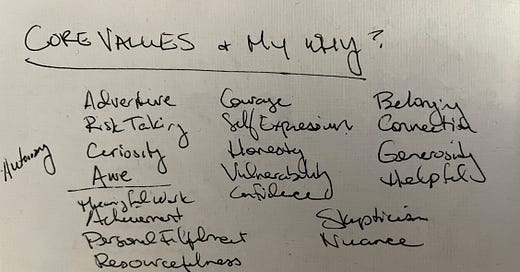 CORE VALUES & MY WHY?
Autonomy
Adventure
Risk Taking
Curiosity
Awe
Meaningful Work
Achievement
Personal Fulfilment
Resourcefulness
Courage
Self Expression
Honesty
Vulnerability
Confidence
Belonging
Connection
Generosity
Helpful
Skepticism
Nuance